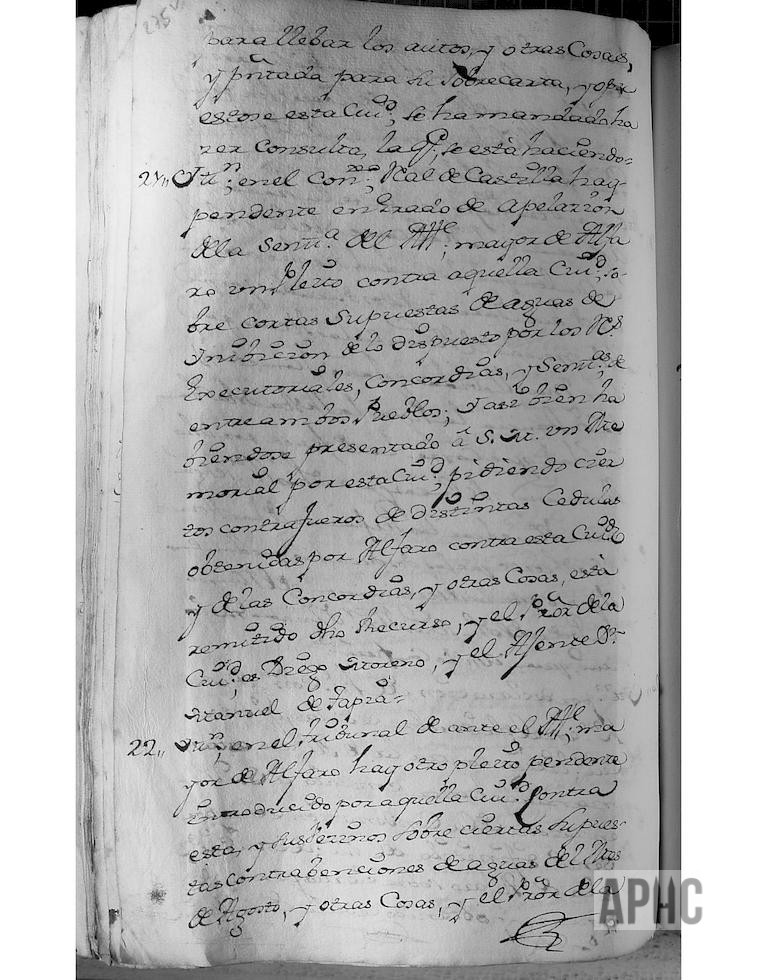 275
para llebar los autos, y otras Cosas,
y pñtada para su sobrecarta, y opu
estose esta Ciud, se ha mandado ha
zer Consulta, la q.e se està haciendo=
21,, Ytt.n en el Con.o Real de Castilla hay
pendente en grado de apelazion
de la Sent.a del Alc.e mayor de Alfa
ro un Pleito contra aquella Ciud, so
bre cortas supuestas de aguas de
Inibicion de lo dispuesto por los R.s
Executoriales, Concordias, y Sent.as de
entre ambos Pueblos; y assi bien ha
biendose presentado â S. M. un Me
morial por esta Ciud, pidiendo cier
tos contrafueros de distintas Cedulas
obtenidas por Alfaro contra esta Ciud
y de las Concordias, y otras Cosas, està
remitido dho Recurso, y el P.ror de la
Ciud, es Diego Moreno, y el Ajente D.n
Manuel de Tapia=
22,, Ytt.n en el tribunal de ante el Alc.e ma
yor de Alfaro hay otro pleito pendente
Introducido por aquella Ciud contra
esta, y sus vezinos sobre ciertas supues
tas contrabenciones de aguas del Mes
de Agosto, y otras Cosas, y el P.ror de la
APHC